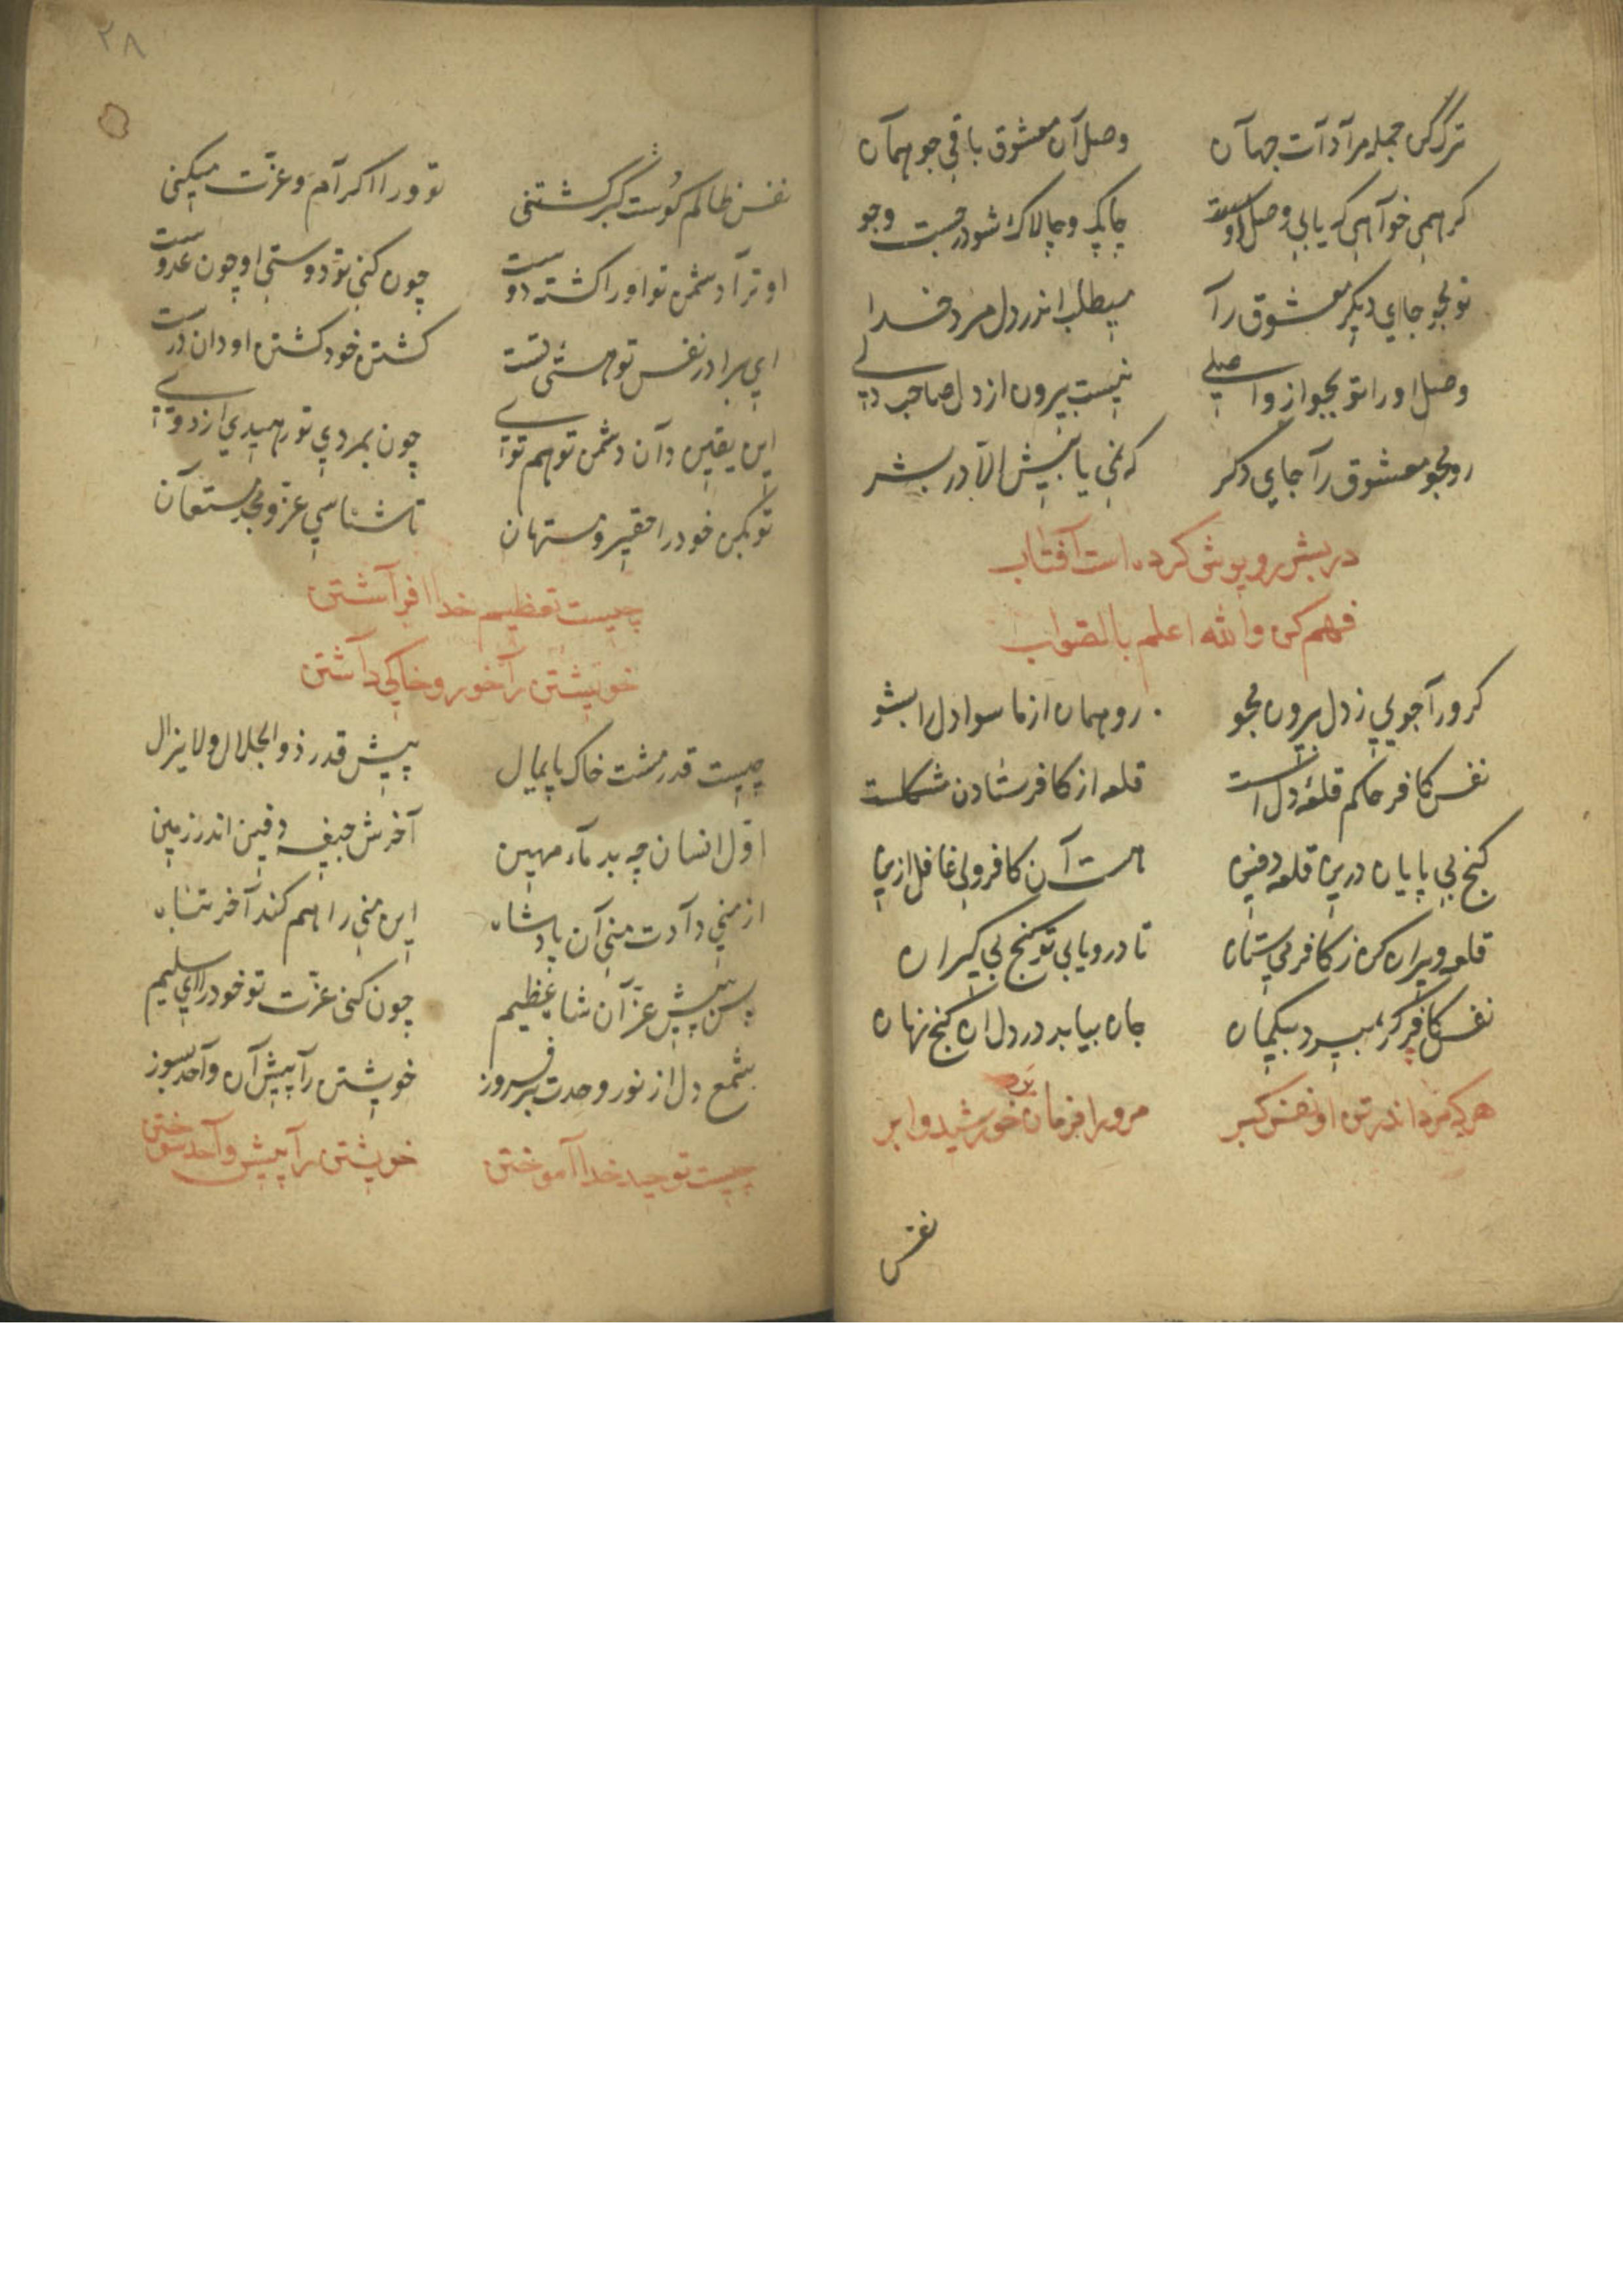 ترک کن جمله مرادات جهان وصل آن معشوق باقی جو همان
کر همی خواهی که یابی وصل دوست چابک و چالاک شو در جست وجو
تو مجو جای دیکر معشوق را میطلب اندر دل مرد خدا
وصل او را تو بجو از واصلے نیست بیرون از دل صاحب دلے
رو مجو معشوق را جای دکر که نمی یابیش الا در بشر
در بشر روپوش کرده است آفتاب
فهم کن والله اعلم بالصواب
کر ورا جویی ز دل بیرون مجو رو همان از ما سوا دل را بشو
نفس کافر حاکم قلعهٔ دل است قلعه از کافر ستادن مشکلست
کنج بی پایان درین قلعه دفین هست آن کافر ولی غافل ازین
قلعه ویران کن ز کافر می ستان تا درو یابی تو کنج بی کران
نفس کافر کر بمیرد بیکمان جان بیابد در دل ان کنج نهان
هرکه مرد اندر تن او نفس کبر مر ورا فرمان برد خورشید و ابر
نفس
٢٨
نفس ظالم کوست کبر کشتنی تو ورا اکرام و عزت میکنی
او ترا دشمن تو اورا کشته دوست چون کنی تو دوستی او چون عدوست
ای برادر نفس تو هستی تست کشتن خود کشتن او دان درست
این یقین دان دشمن تو هم توئے چون بمردی تو رهیدی از دوئے
تو بکن خود را حقیر و مستهان تا شناسی عز و مجد مستعان
چیست تعظیم خدا افراشتن
خویشتن را خور و خاکی داشتن
چیست قدر مشت خاک پایمال پیش قدر ذو الجلال ولا یزال
اول انسان چه بد ماء مهین آخرش جیفه دفین اندر زمین
از منی دادت منی آن پادشاه این منی را هم کند آخر تباه
پس پیش عز آن شاه عظیم چون کنی عزت تو خود را ای سلیم
شمع دل از نور وحدت بر فروز خویشتن را پیش آن واحد بسوز
چیست توحید خدا آموختن خویشتن را پیش واحد سوختن